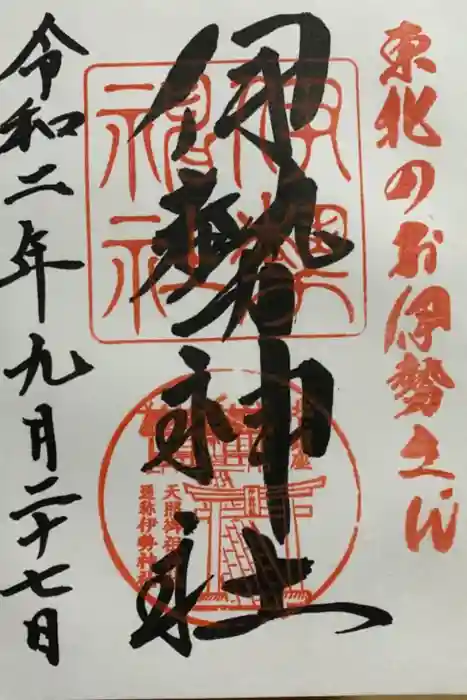 東北のお伊勢さん
伊勢神社
伊勢
神社
天照御祖神社
通称伊勢神社
令和二年九月二十七日